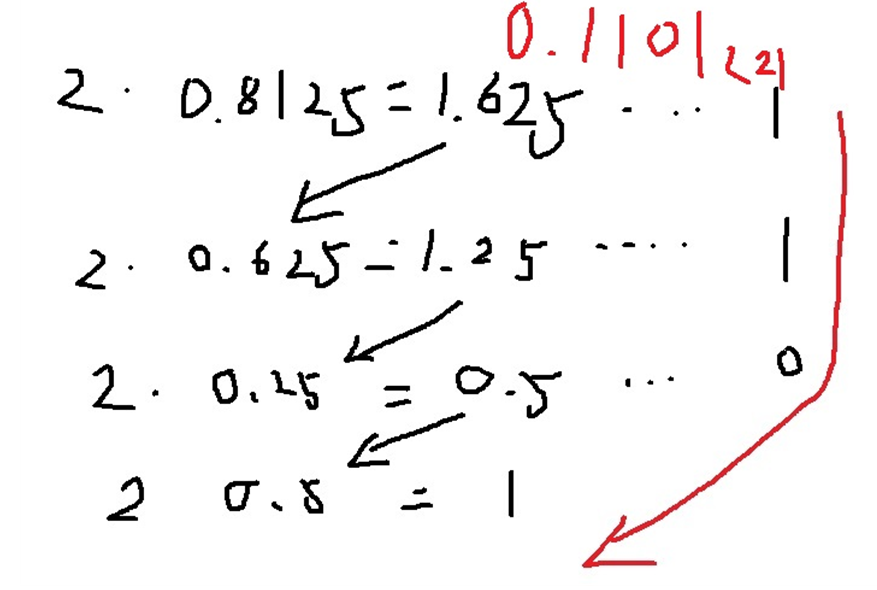 0.1101(2)
2· 0.8125=1.625 ····· 1
2· 0.625=1.25 ····· 1
2· 0.25 = 0.5 ··· 0
2 0.5 = 1